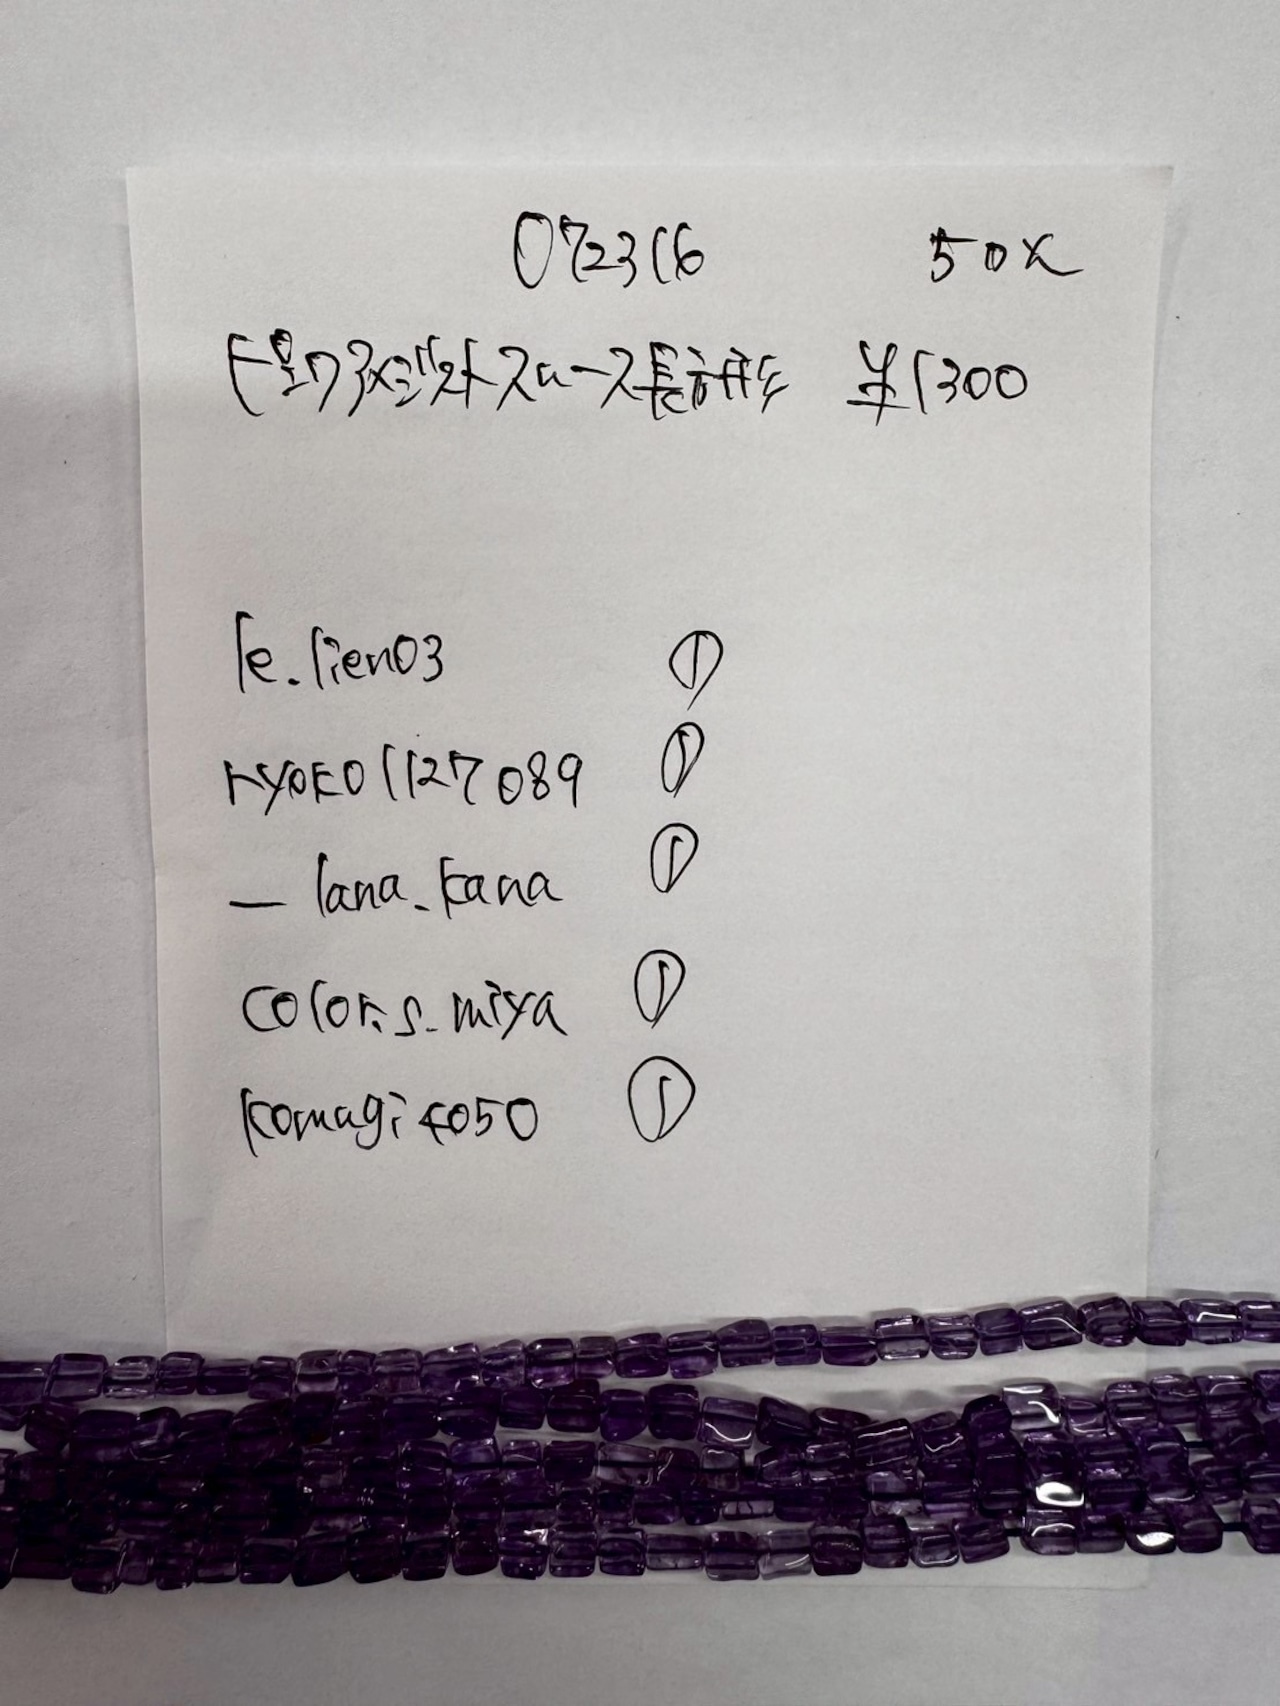 072316 50x
ピンクアメジストスムース長方形 半1300
le.lien03 ①
ryoko1127089 ①
_lana_kana ①
color.s_miya ①
komagi4050 ①